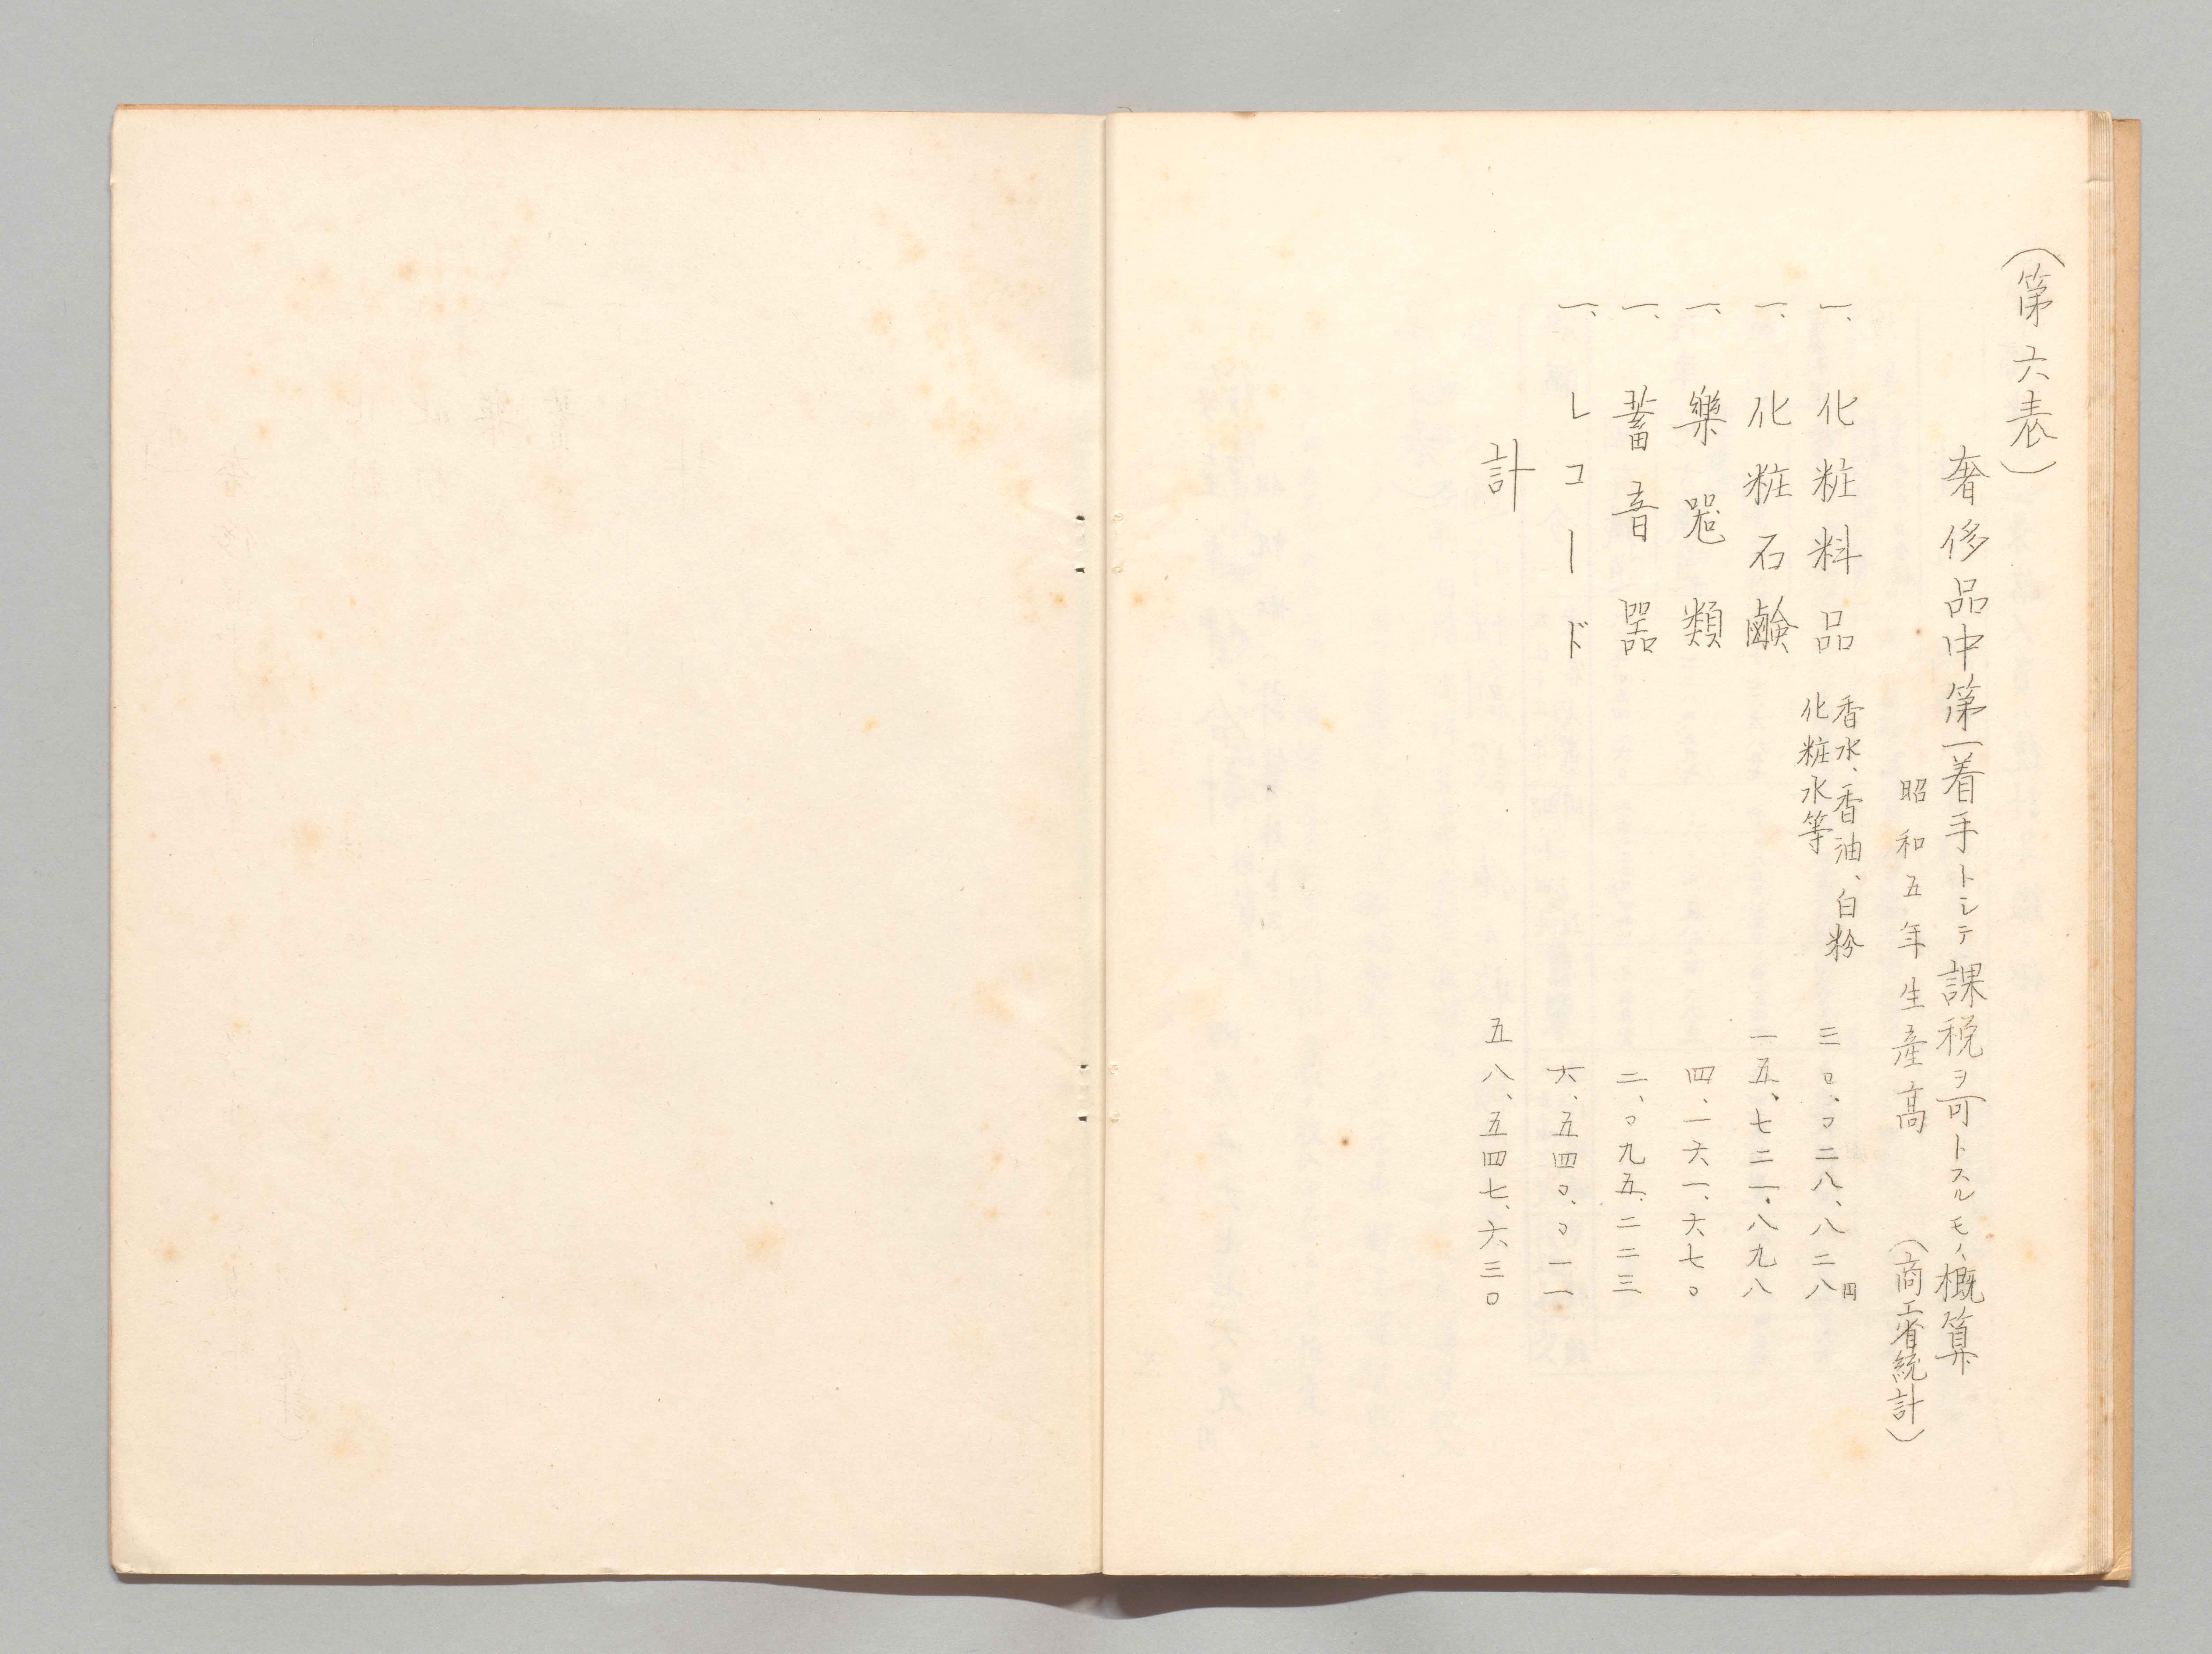 (第六表)
奢侈品中第一着手トシテ課税ヲ可トスルモノ概算
昭和五年生産高 (商工省統計)
一、化粧料品 香水、香油、白粉 化粧水等 三〇、〇二八、八二八円
一、化粧石鹸 一五、七二一、八九八
一、樂器類 四、一六一、六七〇
一、蓄音器 二、〇九五、二二三
一、レコード 六、五四〇、〇一一
計 五八、五四七、六三〇